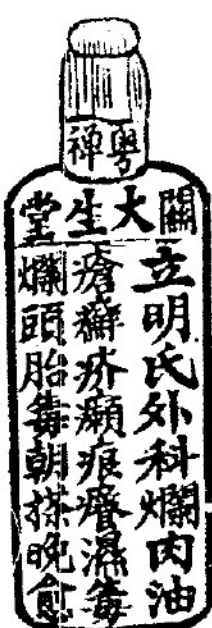 粵禅
關大生堂
立明氏外科爛肉油
瘡癬疥癩痕癢濕毒
爛頭胎毒朝搽晚愈